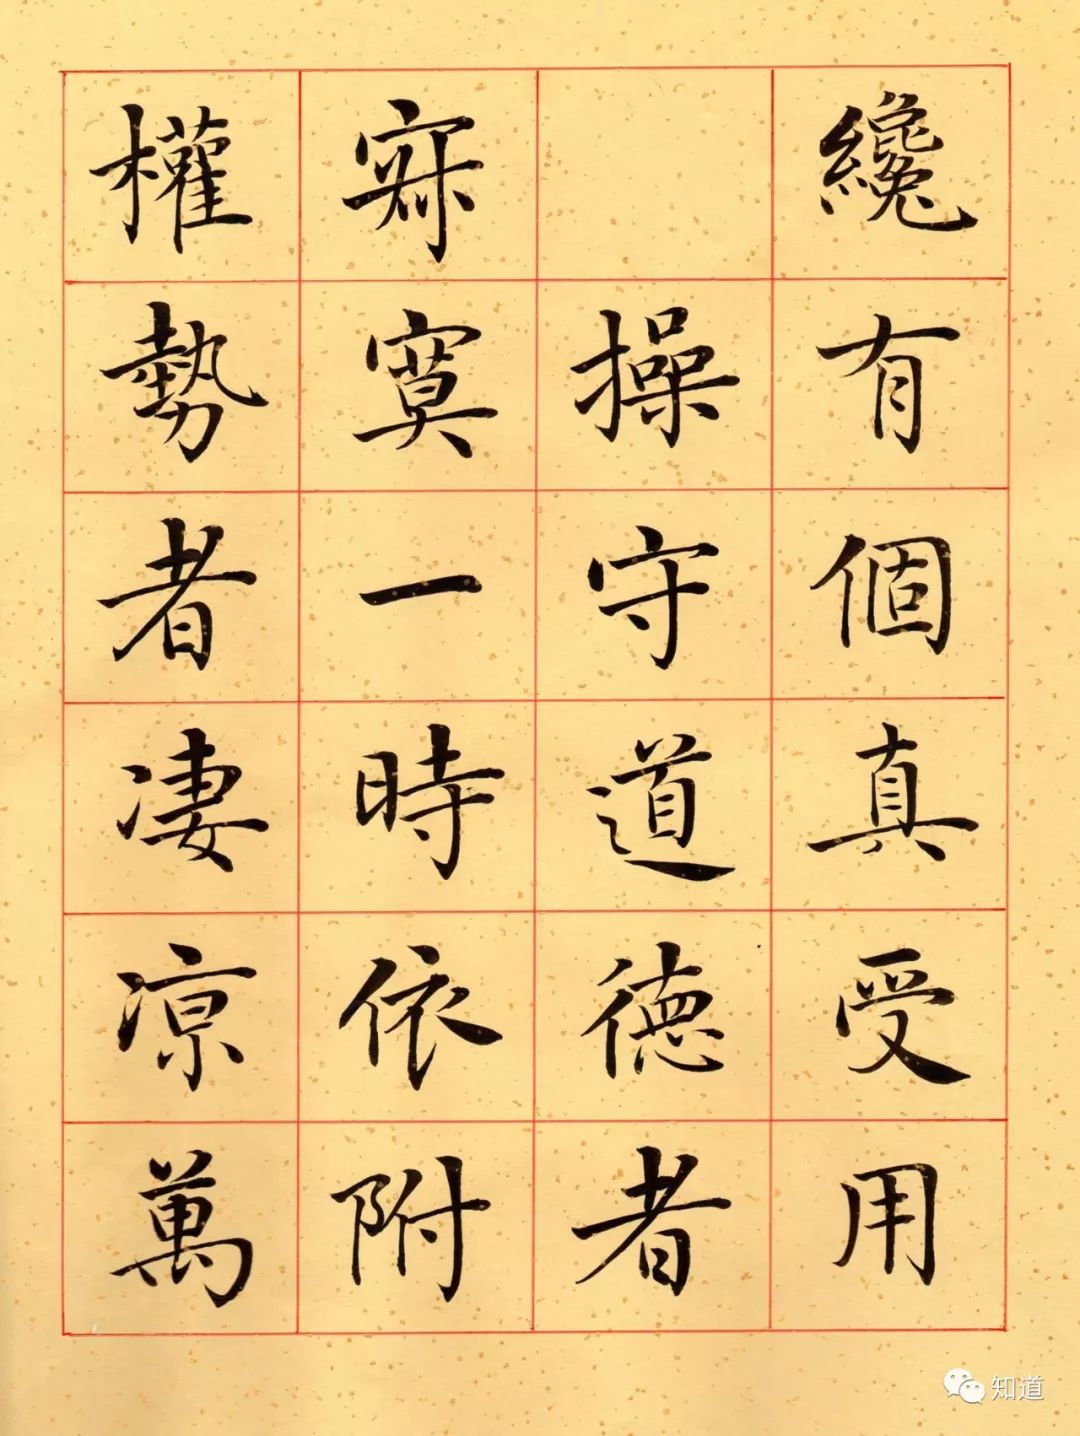 纔有個真受用
操守道德者
寂寞一時依附
權勢者凄凉萬
知道